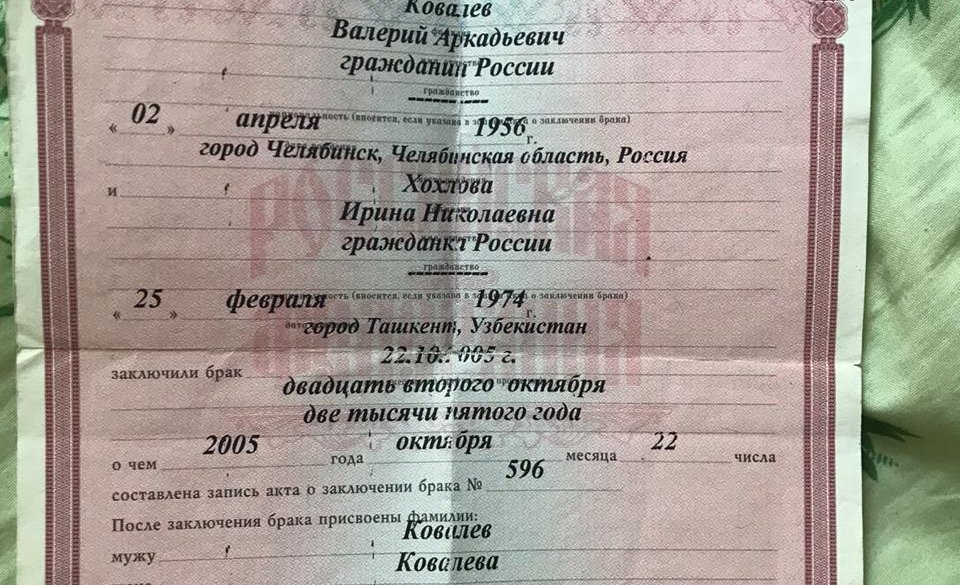 Ковалев
Валерий Аркадьевич
гражданин России
гражданство
национальность (вносится, если указана в записи акта о заключении брака)
« 02 » апреля 1956 г.
город Челябинск, Челябинская область, Россия
и Хохлова
Ирина Николаевна
гражданка России
гражданство
национальность (вносится, если указана в записи акта о заключении брака)
« 25 » февраля 1974 г.
город Ташкент, Узбекистан
заключили брак 22.10.2005 г.
двадцать второго октября
две тысячи пятого года
о чем 2005 года октября месяца 22 числа
составлена запись акта о заключении брака № 596
После заключения брака присвоены фамилии:
мужу Ковалев
Ковалева